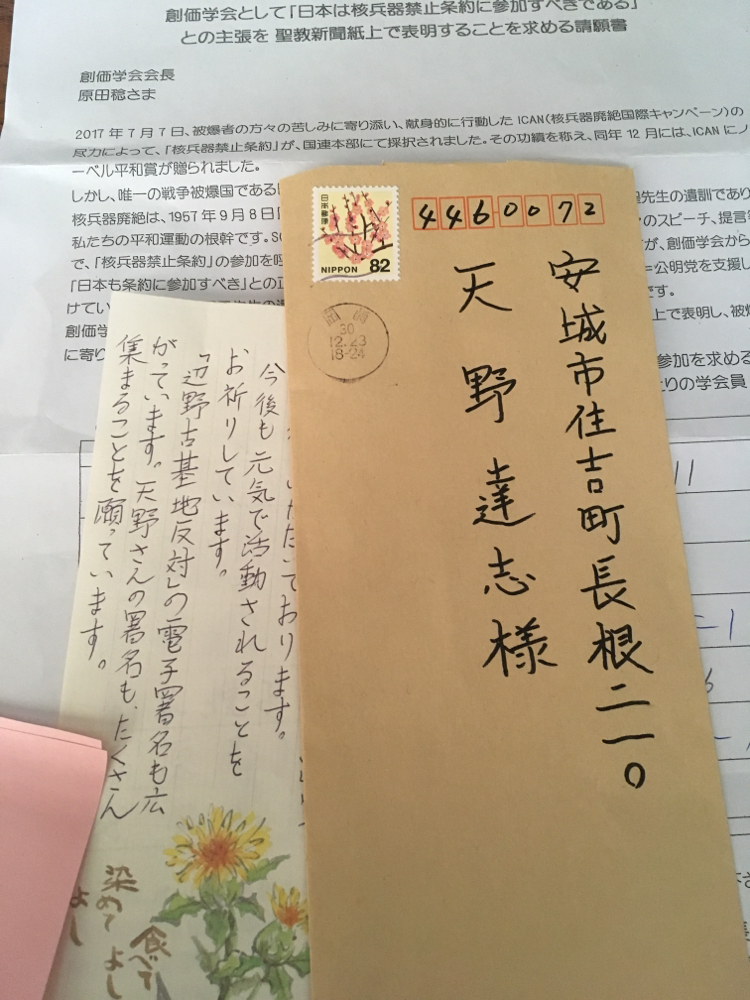 創価学会として「日本は核兵器禁止条約に参加すべきである」
との主張を 聖教新聞紙上で表明することを求める請願書
創価学会会長
原田稔さま
2017 年 7 月 7 日、被爆者の方々の苦しみに寄り添い、献身的に行動した ICAN(核兵器廃絶国際キャンペーン)の
尽力によって、「核兵器禁止条約」が、国連本部にて採択されました。その功績を称え、同年 12 月には、ICAN にノ
ーベル平和賞が贈られました。
しかし、唯一の戦争被爆国である
先生の遺訓であり
核兵器廃絶は、1957 年 9 月 8 日
のスピーチ、提言等
私たちの平和運動の根幹です。
が、創価学会から
で、「核兵器禁止条約」の参加を
=公明党を支援し
「日本も条約に参加すべき」との
です。
けてい
上で表明し、被爆
創価学
に寄り
参加を求める
たりの学会員
日本郵便
NIPPON 82
30
12.23
18-24
4460072
安城市住吉町長根二一〇
天野達志様
いただいております。
今後も元気で活動されることを
お祈りしています。
「辺野古基地反対」の電子署名も広
がっています。天野さんの署名も、たくさん
集まることを願っています。
染めてよし
食べてよし
よし